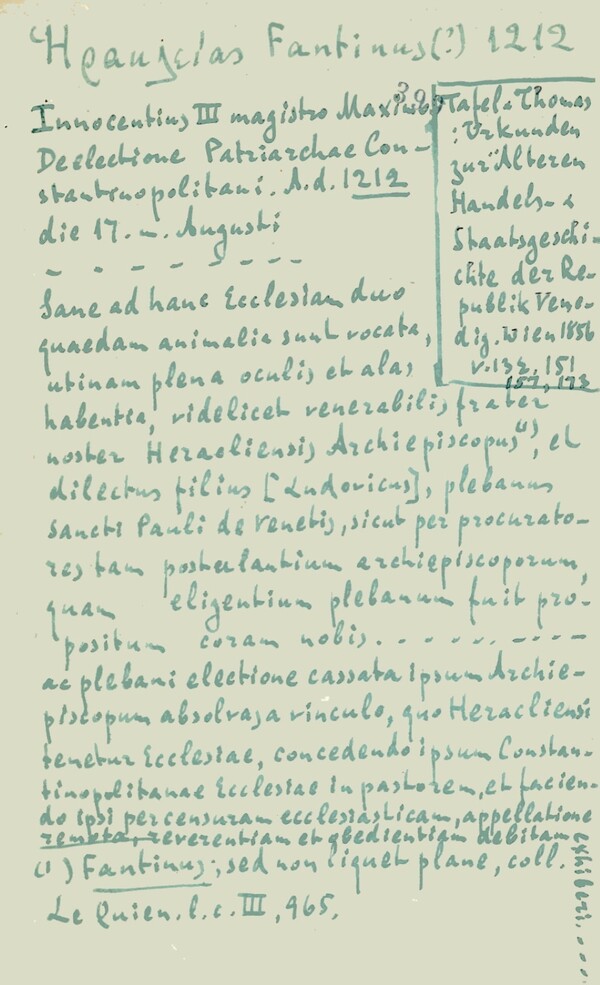 Ηρακλείας Fantinus(?) 1212
Innocentius III magistro Maximo
De electione Patriarchae Con-
stantinopolitani. A.d. 1212
die 17. m. Augusti
Tafel & Thomas
: Urkunden
zur Älteren
Handels- &
Staatsgeschi-
chte der Re-
publik Vene-
dig. Wien 1856
v. 132, 151
157, 173
Sane ad hanc Ecclesiam duo
quaedam animalia sunt vocata,
utinam plena oculis et alas
habentia, videlicet venerabilis frater
noster Heracliensis Archiepiscopus(1), et
dilectus filius [Ludovicus], plebanus
sancti Pauli de Venetis, sicut per procurato-
res tam postulantium archiepiscoporum,
quam eligentium plebanum fuit pro-
positum coram nobis. . . . . . . . . . .
ac plebani electione cassata ipsum Archie-
piscopum absolvas a vinculo, quo Heracliensi
tenetur Ecclesiae, concedendo ipsum Constan-
tinopolitanae Ecclesiae in pastorem, et facien-
do ipsi per censuram ecclesiasticam, appellatione
remota, reverentiam et obedientiam debitam
exhiberi. . . . .
(1) Fantinus; sed non liquet plane, coll.
Le Quien. l. c. III, 965.